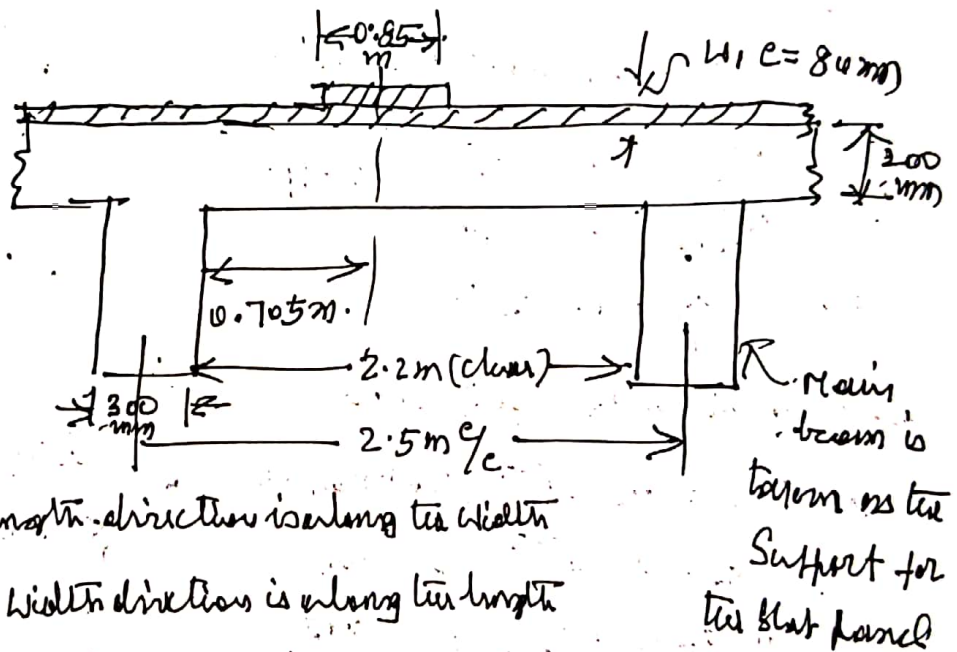 0.85
m
W, C = 80 mm
200
mm
0.705m.
2.2m (clear)
300
mm
2.5m c/c.
Main
beam is
taken as the
Support for
the slab panel
direction is along the width
Width direction is along the length